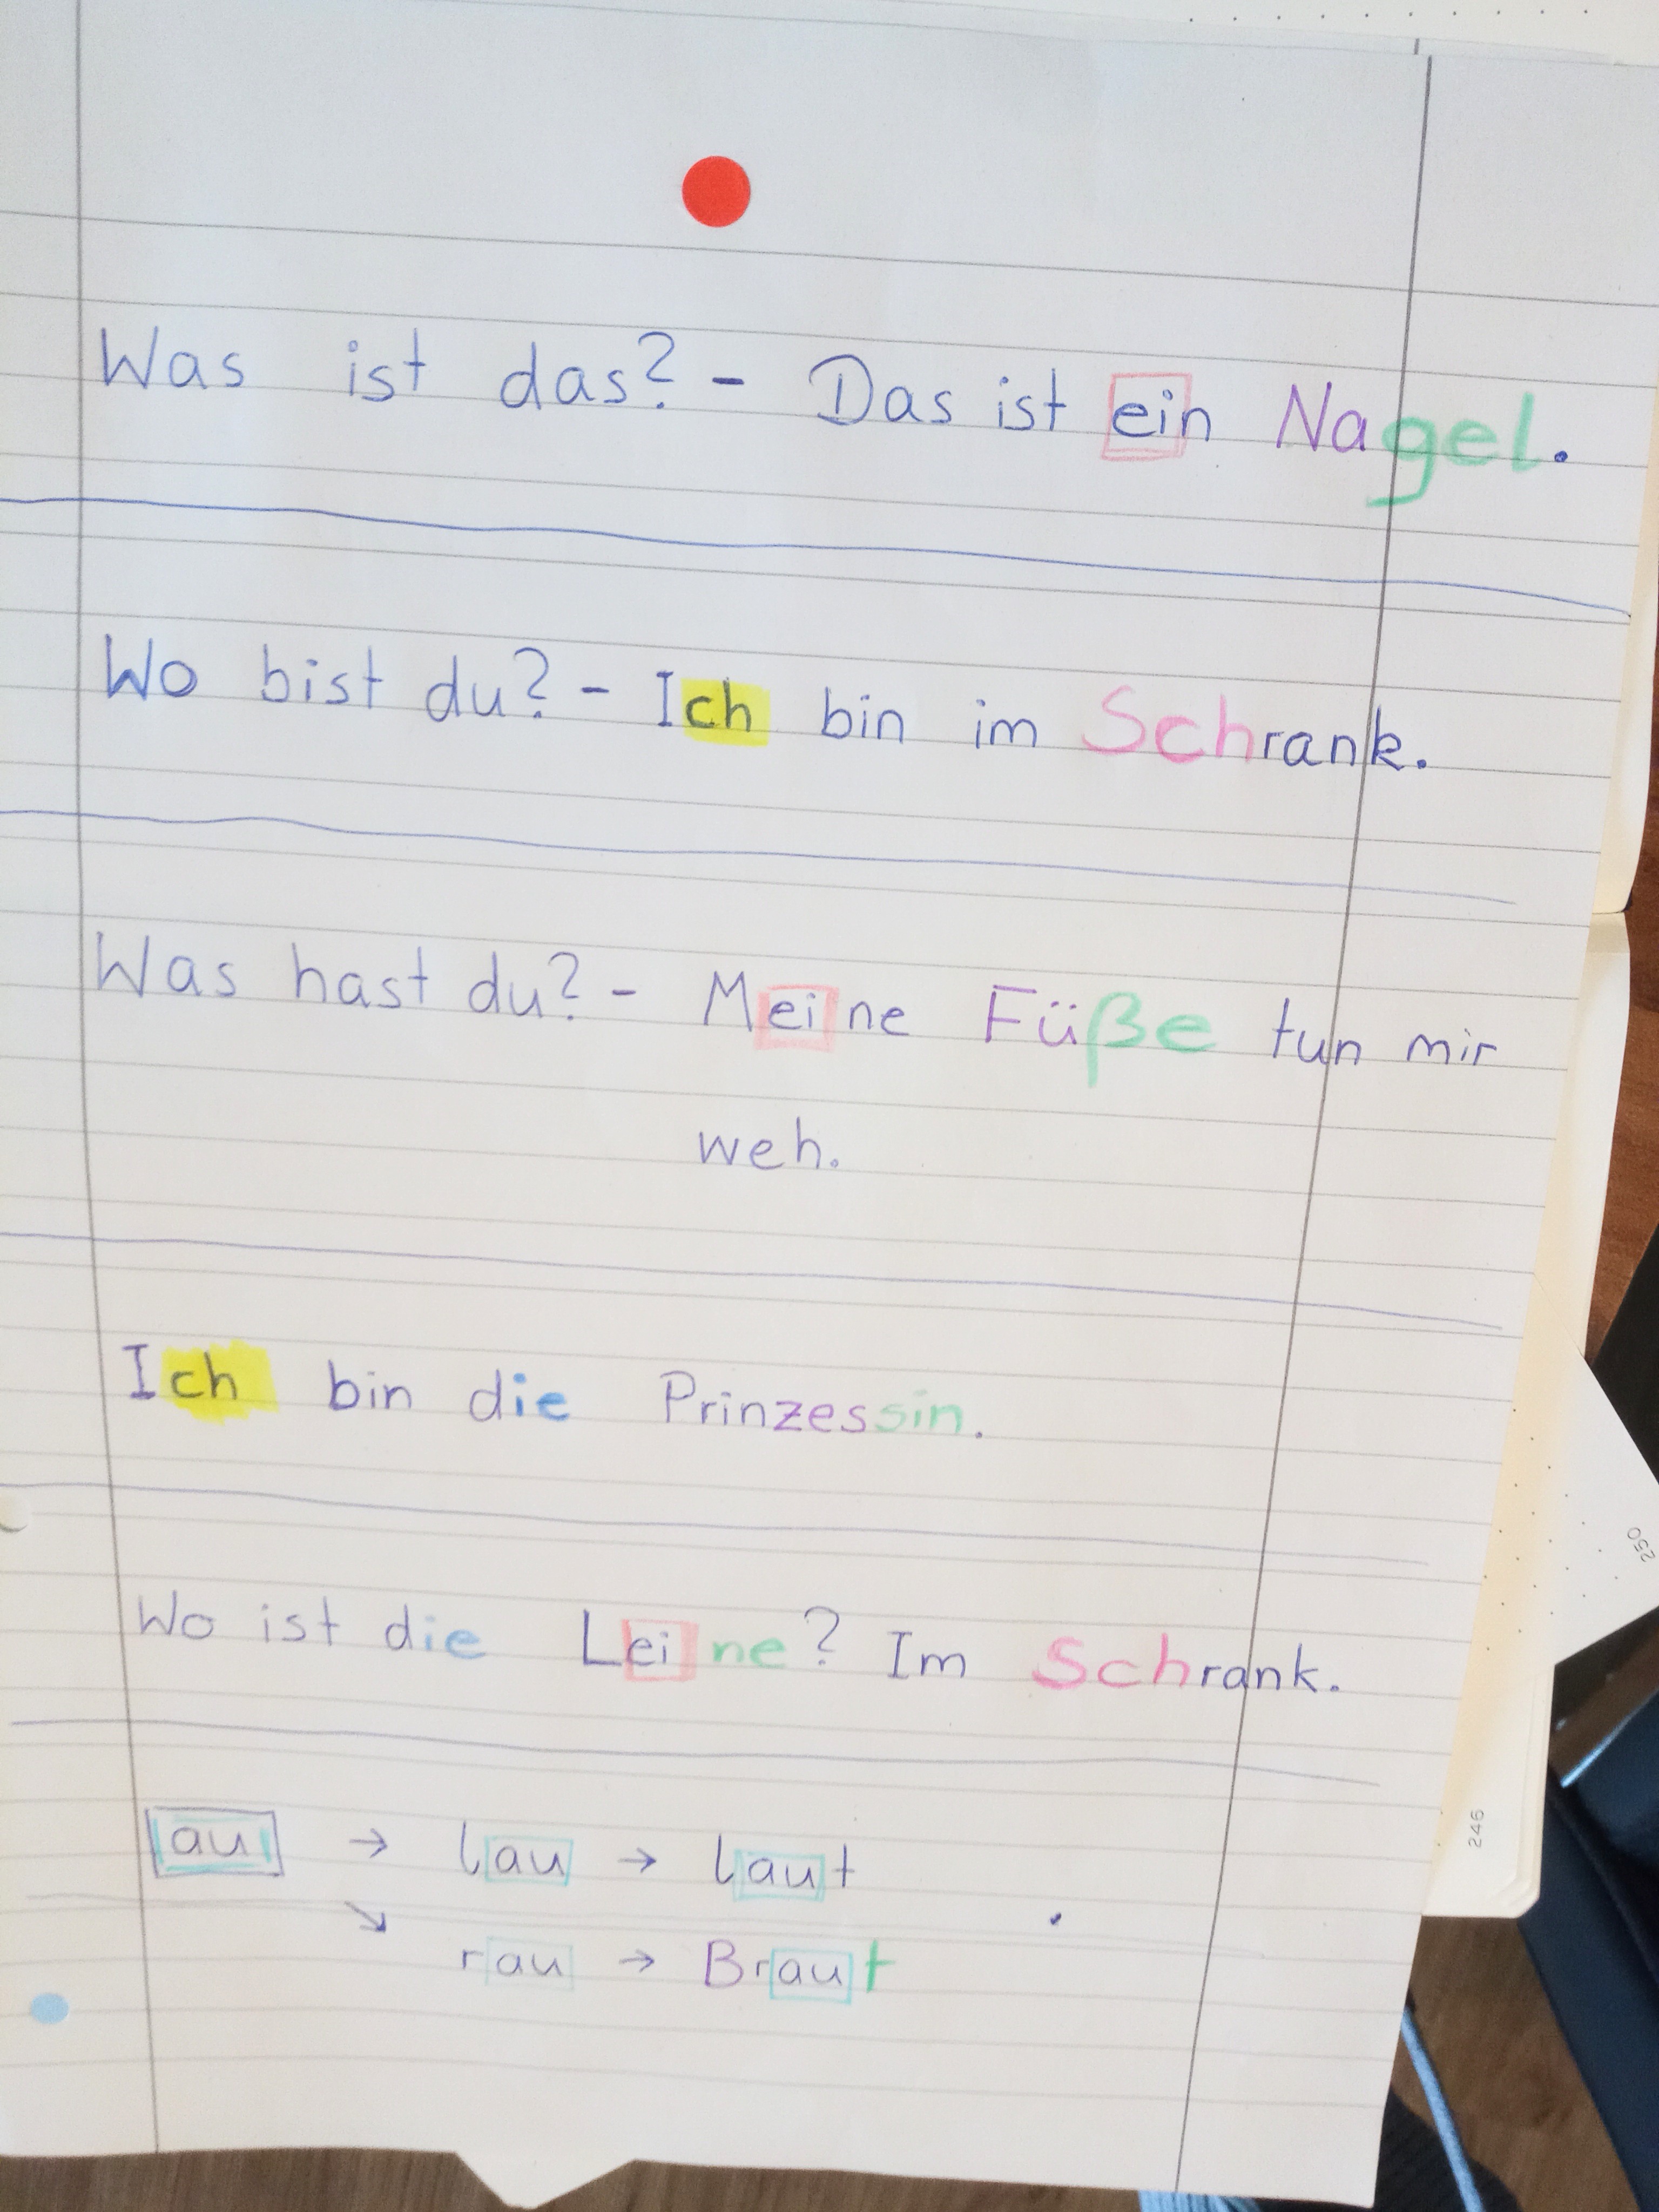 Was ist das? - Das ist ein Nagel.
Wo bist du? - Ich bin im Schrank.
Was hast du? - Meine Füße tun mir
weh.
Ich bin die Prinzessin.
Wo ist die Leine? Im Schrank.
au → lau → laut
↘ rau → Braut
250
246